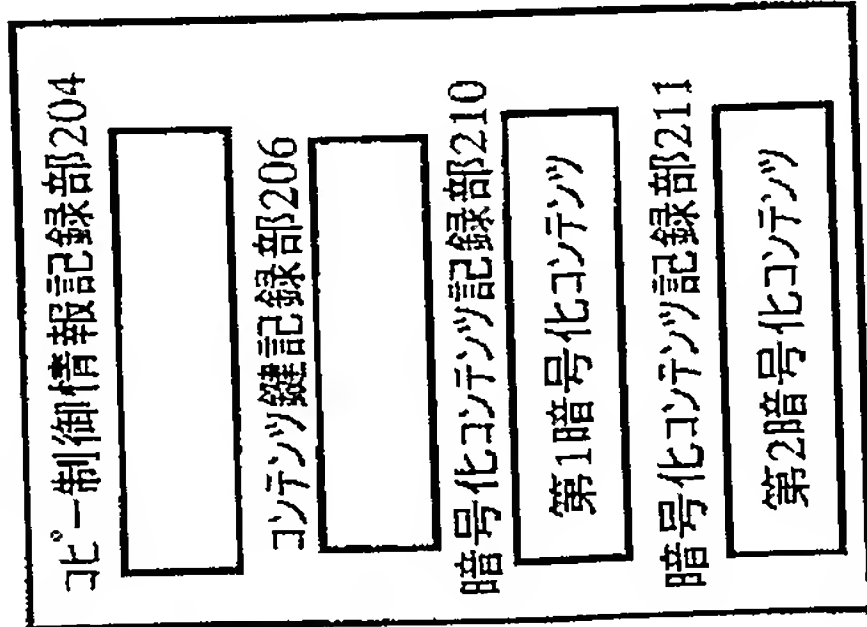 コピー制御情報記録部204
コンテンツ鍵記録部206
暗号化コンテンツ記録部210
第1暗号化コンテンツ
暗号化コンテンツ記録部211
第2暗号化コンテンツ